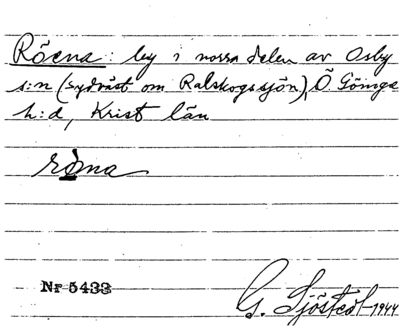 Röena: by i norra delen av Osby
s:n (sydväst om Ralskogssjön), Ö. Göinge
h:d, Krist län
röna
Nr 5433
G. Sjöstedt 1944